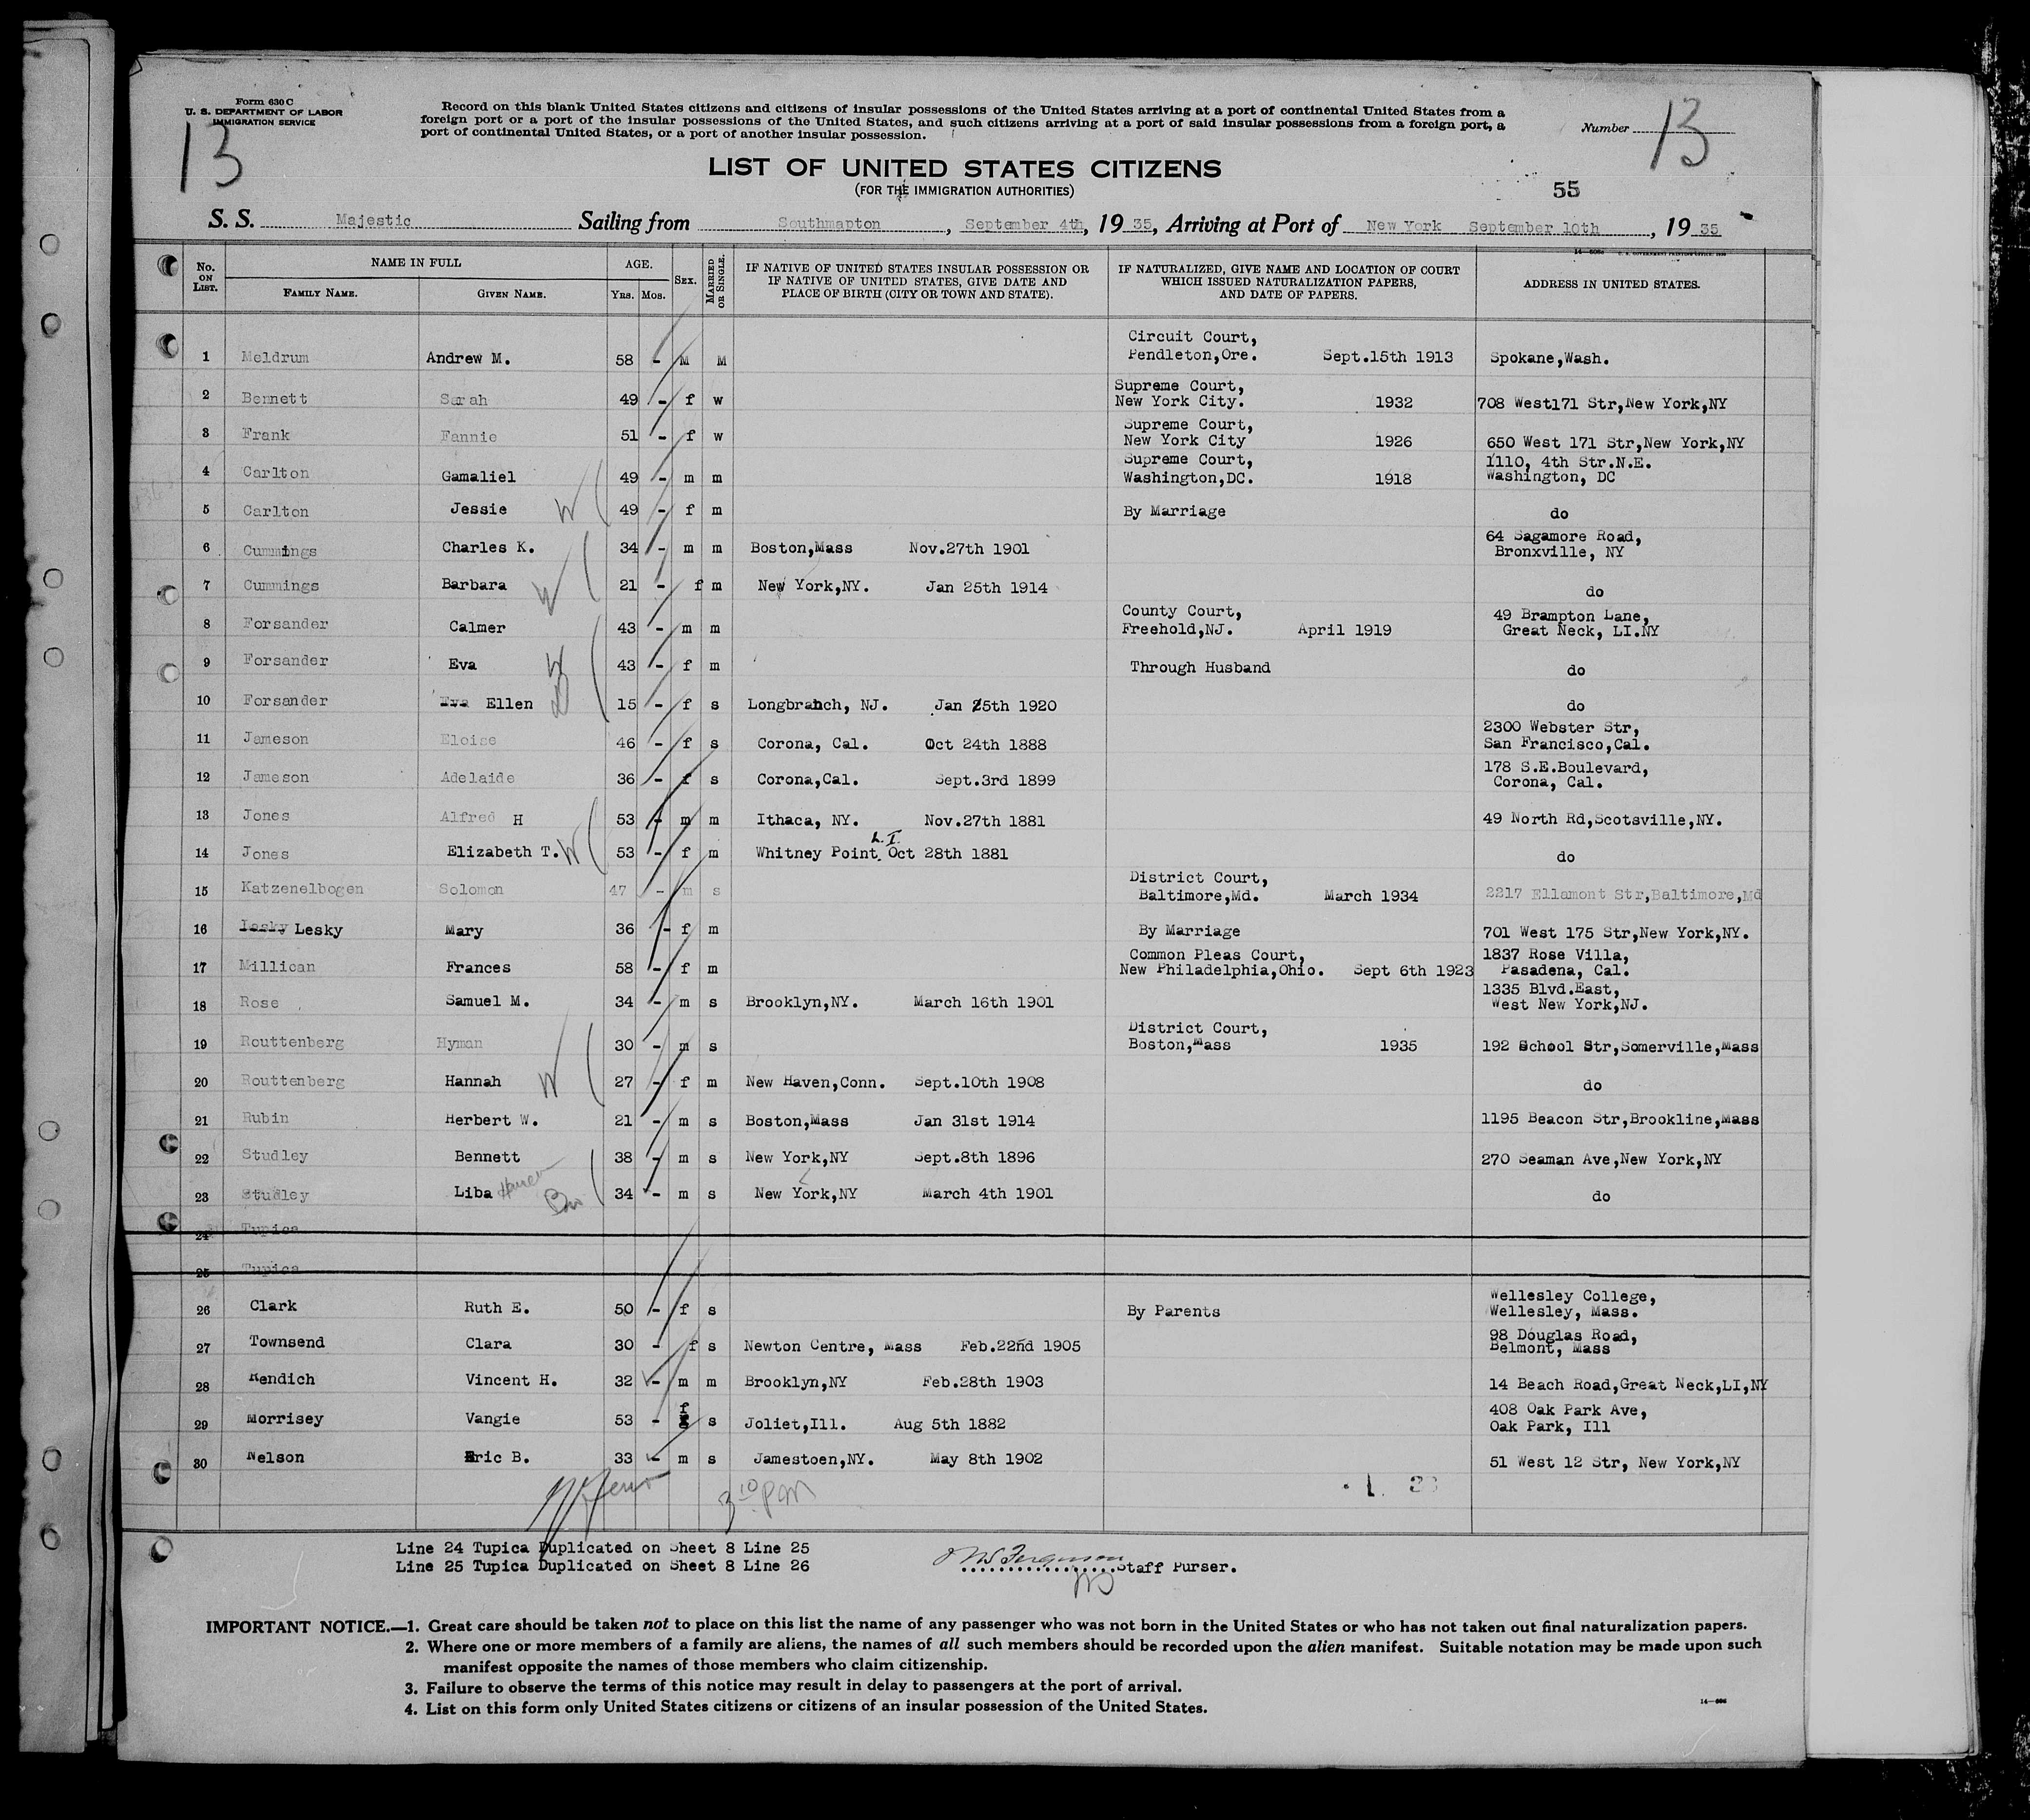 Form 630 C
U. S. DEPARTMENT OF LABOR
IMMIGRATION SERVICE
13
Record on this blank United States citizens and citizens of insular possessions of the United States arriving at a port of continental United States from a
foreign port or a port of the insular possessions of the United States, and such citizens arriving at a port of said insular possessions from a foreign port, a
port of continental United States, or a port of another insular possession.
Number 13
LIST OF UNITED STATES CITIZENS
(FOR THE IMMIGRATION AUTHORITIES)
55
S. S. Majestic Sailing from Southmapton, September 4th, 19 35, Arriving at Port of New York September 10th, 19 35
No. ON LIST. NAME IN FULL FAMILY NAME. GIVEN NAME. AGE. Yrs. Mos. SEX. MARRIED OR SINGLE. IF NATIVE OF UNITED STATES INSULAR POSSESSION OR IF NATIVE OF UNITED STATES, GIVE DATE AND PLACE OF BIRTH (CITY OR TOWN AND STATE). IF NATURALIZED, GIVE NAME AND LOCATION OF COURT WHICH ISSUED NATURALIZATION PAPERS, AND DATE OF PAPERS. ADDRESS IN UNITED STATES.
Circuit Court,
1 Meldrum Andrew M. 58 - M M Pendleton,Ore. Sept.15th 1913 Spokane,Wash.
Supreme Court,
2 Bennett Sarah 49 - f w New York City. 1932 708 West171 Str,New York,NY
Supreme Court,
3 Frank Fannie 51 - f w New York City 1926 650 West 171 Str,New York,NY
Supreme Court, 1110, 4th Str.N.E.
4 Carlton Gamaliel 49 - m m Washington,DC. 1918 Washington, DC
5 Carlton Jessie 49 - f m By Marriage do
64 Sagamore Road,
6 Cummings Charles K. 34 - m m Boston,Mass Nov.27th 1901 Bronxville, NY
7 Cummings Barbara 21 - f m New York,NY. Jan 25th 1914 do
County Court, 49 Brampton Lane,
8 Forsander Calmer 43 - m m Freehold,NJ. April 1919 Great Neck, LI.NY
9 Forsander Eva 43 - f m Through Husband do
10 Forsander Eva Ellen 15 - f s Longbranch, NJ. Jan 25th 1920 do
2300 Webster Str,
11 Jameson Eloise 46 - f s Corona, Cal. Oct 24th 1888 San Francisco,Cal.
178 S.E.Boulevard,
12 Jameson Adelaide 36 - f s Corona,Cal. Sept.3rd 1899 Corona, Cal.
13 Jones Alfred H 53 - m m Ithaca, NY. Nov.27th 1881 49 North Rd,Scotsville,NY.
L.I.
14 Jones Elizabeth T. 53 - f m Whitney Point, Oct 28th 1881 do
District Court,
15 Katzenelbogen Solomon 47 - m s Baltimore,Md. March 1934 2217 Ellamont Str,Baltimore,Md
16 Lesky Mary 36 - f m By Marriage 701 West 175 Str,New York,NY.
Common Pleas Court, 1837 Rose Villa,
17 Millican Frances 58 - f m New Philadelphia,Ohio. Sept 6th 1923 Pasadena, Cal.
1335 Blvd.East,
18 Rose Samuel M. 34 - m s Brooklyn,NY. March 16th 1901 West New York,NJ.
District Court,
19 Routtenberg Hyman 30 - m s Boston,Mass 1935 192 School Str,Somerville,Mass
20 Routtenberg Hannah 27 - f m New Haven,Conn. Sept.10th 1908 do
21 Rubin Herbert W. 21 - m s Boston,Mass Jan 31st 1914 1195 Beacon Str,Brookline,Mass
22 Studley Bennett 38 - m s New York,NY Sept.8th 1896 270 Seaman Ave,New York,NY
23 Studley Liba 34 - m s New York,NY March 4th 1901 do
24 Tupica
25 Tupica
Wellesley College,
26 Clark Ruth E. 50 - f s By Parents Wellesley, Mass.
98 Douglas Road,
27 Townsend Clara 30 - f s Newton Centre, Mass Feb.22nd 1905 Belmont, Mass
28 Kendich Vincent H. 32 - m m Brooklyn,NY Feb.28th 1903 14 Beach Road,Great Neck,LI,NY
408 Oak Park Ave,
29 Morrisey Vangie 53 - f s Joliet,Ill. Aug 5th 1882 Oak Park, Ill
30 Nelson Eric B. 33 - m s Jamestoen,NY. May 8th 1902 51 West 12 Str, New York,NY
3 10 PM
Line 24 Tupica Duplicated on Sheet 8 Line 25
Line 25 Tupica Duplicated on Sheet 8 Line 26
Ferguson Staff Purser.
IMPORTANT NOTICE.—1. Great care should be taken not to place on this list the name of any passenger who was not born in the United States or who has not taken out final naturalization papers.
2. Where one or more members of a family are aliens, the names of all such members should be recorded upon the alien manifest. Suitable notation may be made upon such
manifest opposite the names of those members who claim citizenship.
3. Failure to observe the terms of this notice may result in delay to passengers at the port of arrival.
4. List on this form only United States citizens or citizens of an insular possession of the United States.